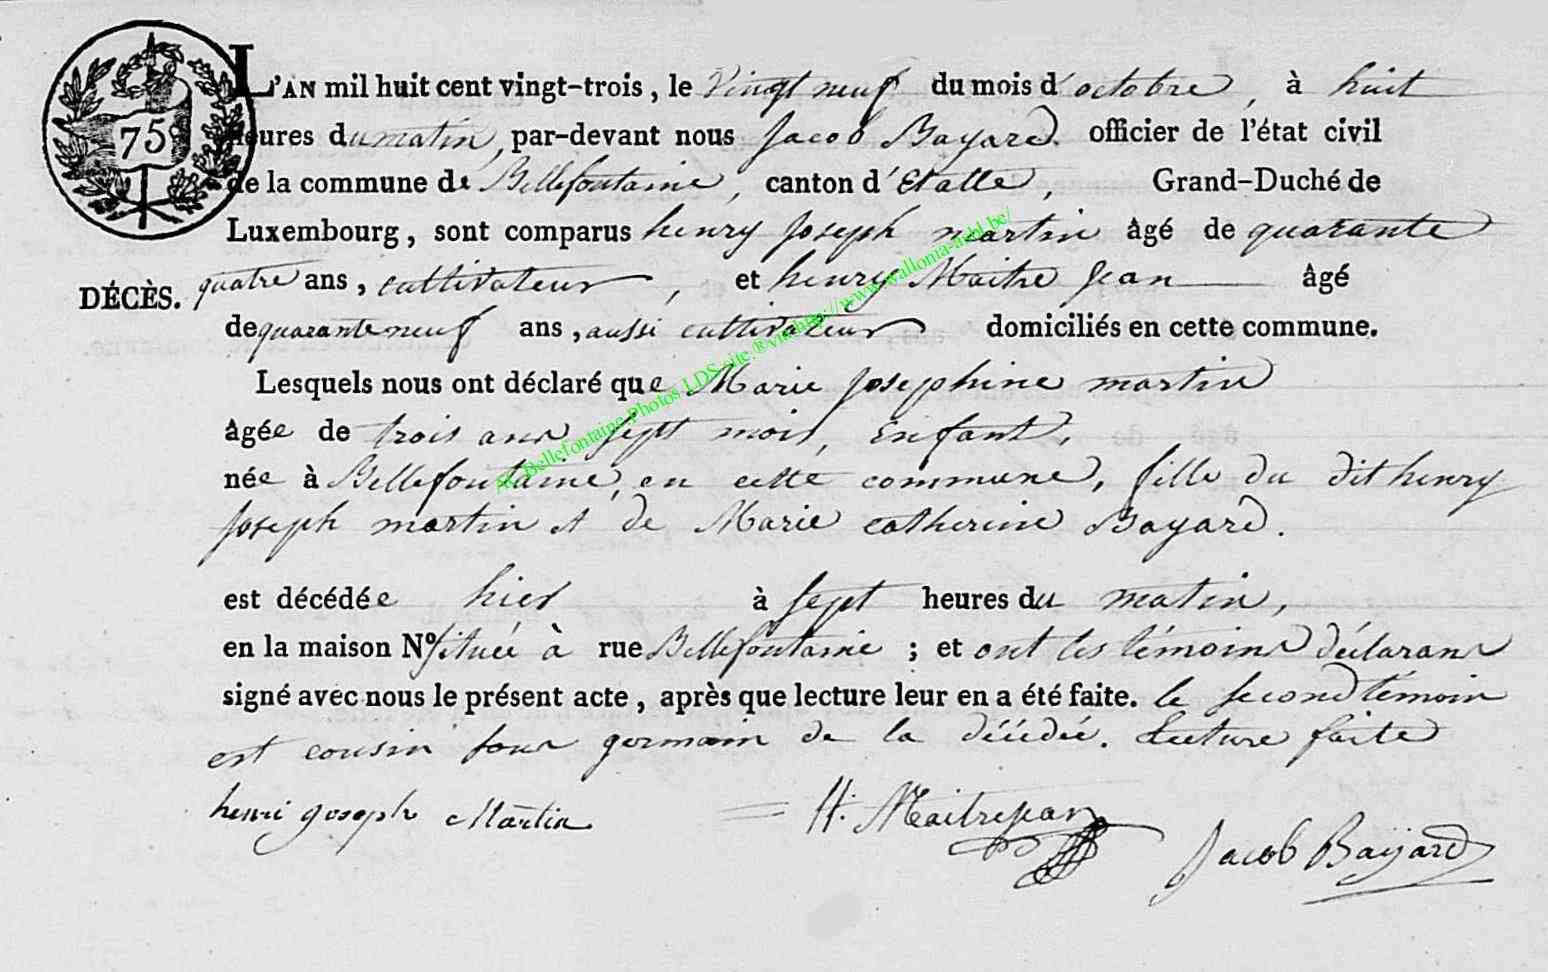 75
L'AN mil huit cent vingt-trois, le Vingt neuf du mois d'octobre, à huit
heures du matin, par-devant nous Jacob Bayard officier de l'état civil
de la commune de Bellefontaine, canton d'Etalle, Grand-Duché de
Luxembourg, sont comparus henry Joseph martin âgé de quarante
quatre ans, cultivateur, et henry Maitre Jean âgé
DÉCÈS.
de quarante neuf ans, aussi cultivateur domiciliés en cette commune.
Lesquels nous ont déclaré que Marie Josephine martin
âgée de trois ans sept mois, enfant,
née à Bellefontaine, en cette commune, fille du dit henry
Joseph martin et de Marie catherine Bayard.
est décédée hier à sept heures du matin,
en la maison No située à rue Bellefontaine ; et ont les témoins déclarans
signé avec nous le présent acte, après que lecture leur en a été faite. le second témoin
est cousin sous germain de la décédée. Lecture faite
henri joseph Martin = H. Maitrejean
Jacob Baÿard
Bellefontaine Photos LDS site ® via http://www.wallonia-asbl.be/